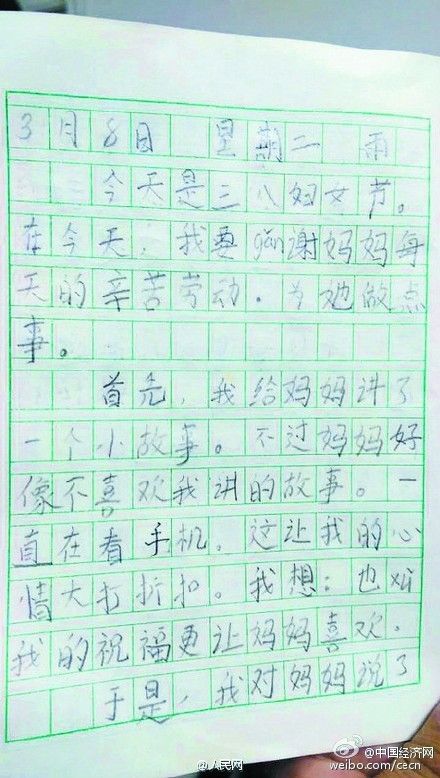 3月8日 星期二 雨
今天是三八妇女节。
在今天，我要gǎn谢妈妈每
天的辛苦劳动。为她做点
事。
首先，我给妈妈讲了
一个小故事。不过妈妈好
像不喜欢我讲的故事。一
直在看手机。这让我的心
情大打折扣。我想：也xǔ
我的祝福更让妈妈喜欢。
于是，我对妈妈说了
@人民网
@中国经济网
weibo.com/cecn